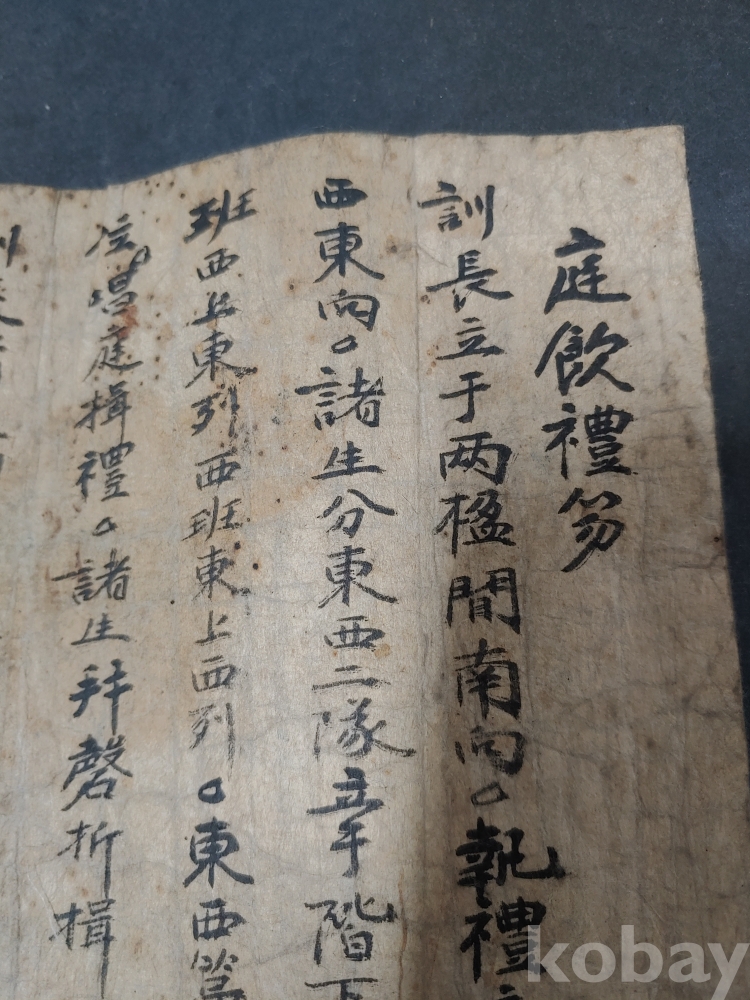 庭飲禮笏
訓長立于两楹間南向。執禮
西東向。諸生分東西二隊立于階下
班西上東列西班東上西列。東西
位。唱庭揖禮。諸生拜磬折揖
kobay